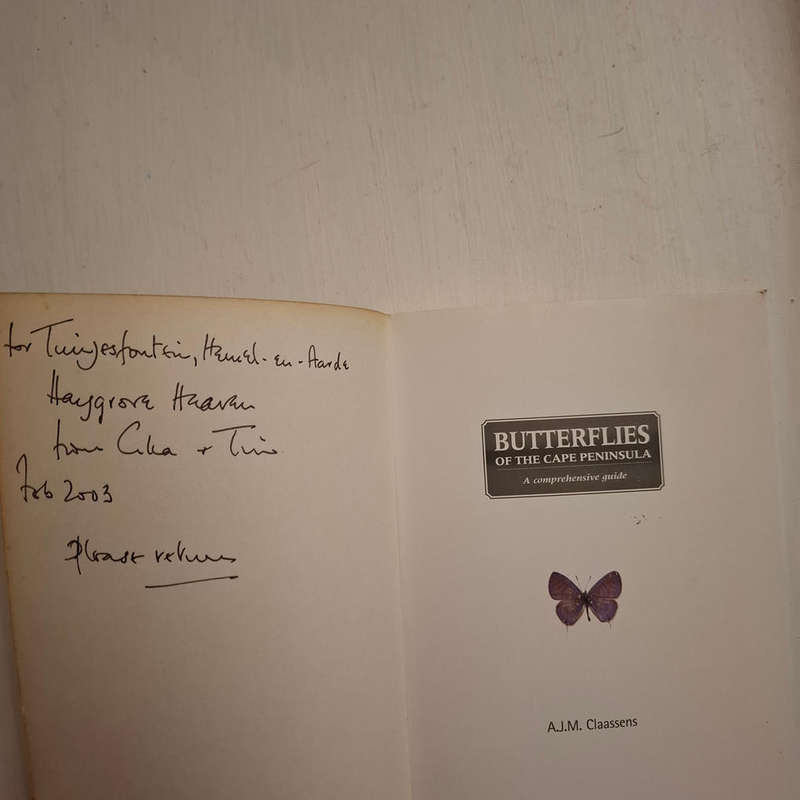 for Tuinjesfontein, Hemel-en-Aarde
Haygrove Heaven
from + Tim
Feb 2003
Please return
BUTTERFLIES
OF THE CAPE PENINSULA
A comprehensive guide
A.J.M. Claassens